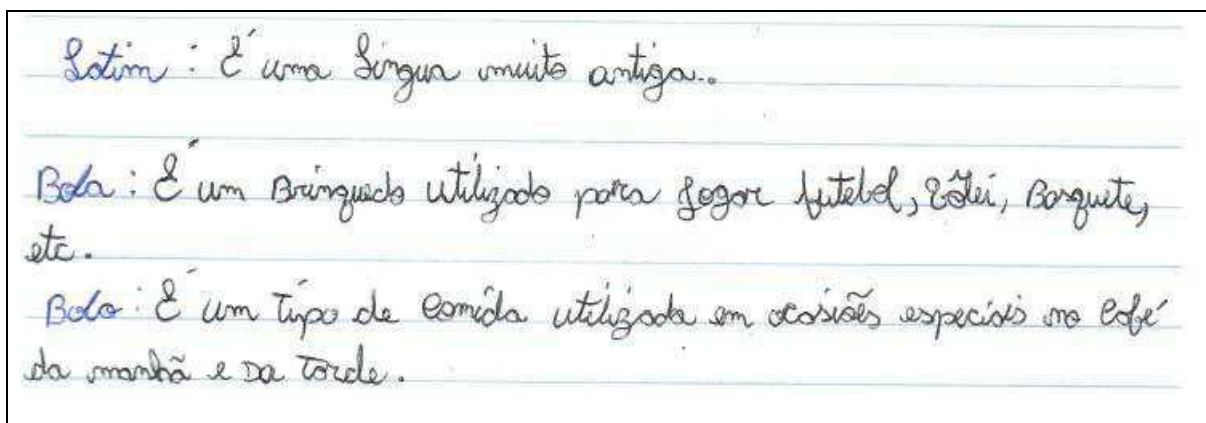 Latim : É uma língua muito antiga..
Bola : É um Brinquedo utilizado para jogar futebol, Vôlei, Basquete,
etc.
Bolo : É um Tipo de Comida utilizada em ocasiões especiais no Café
da manhã e Da Tarde.